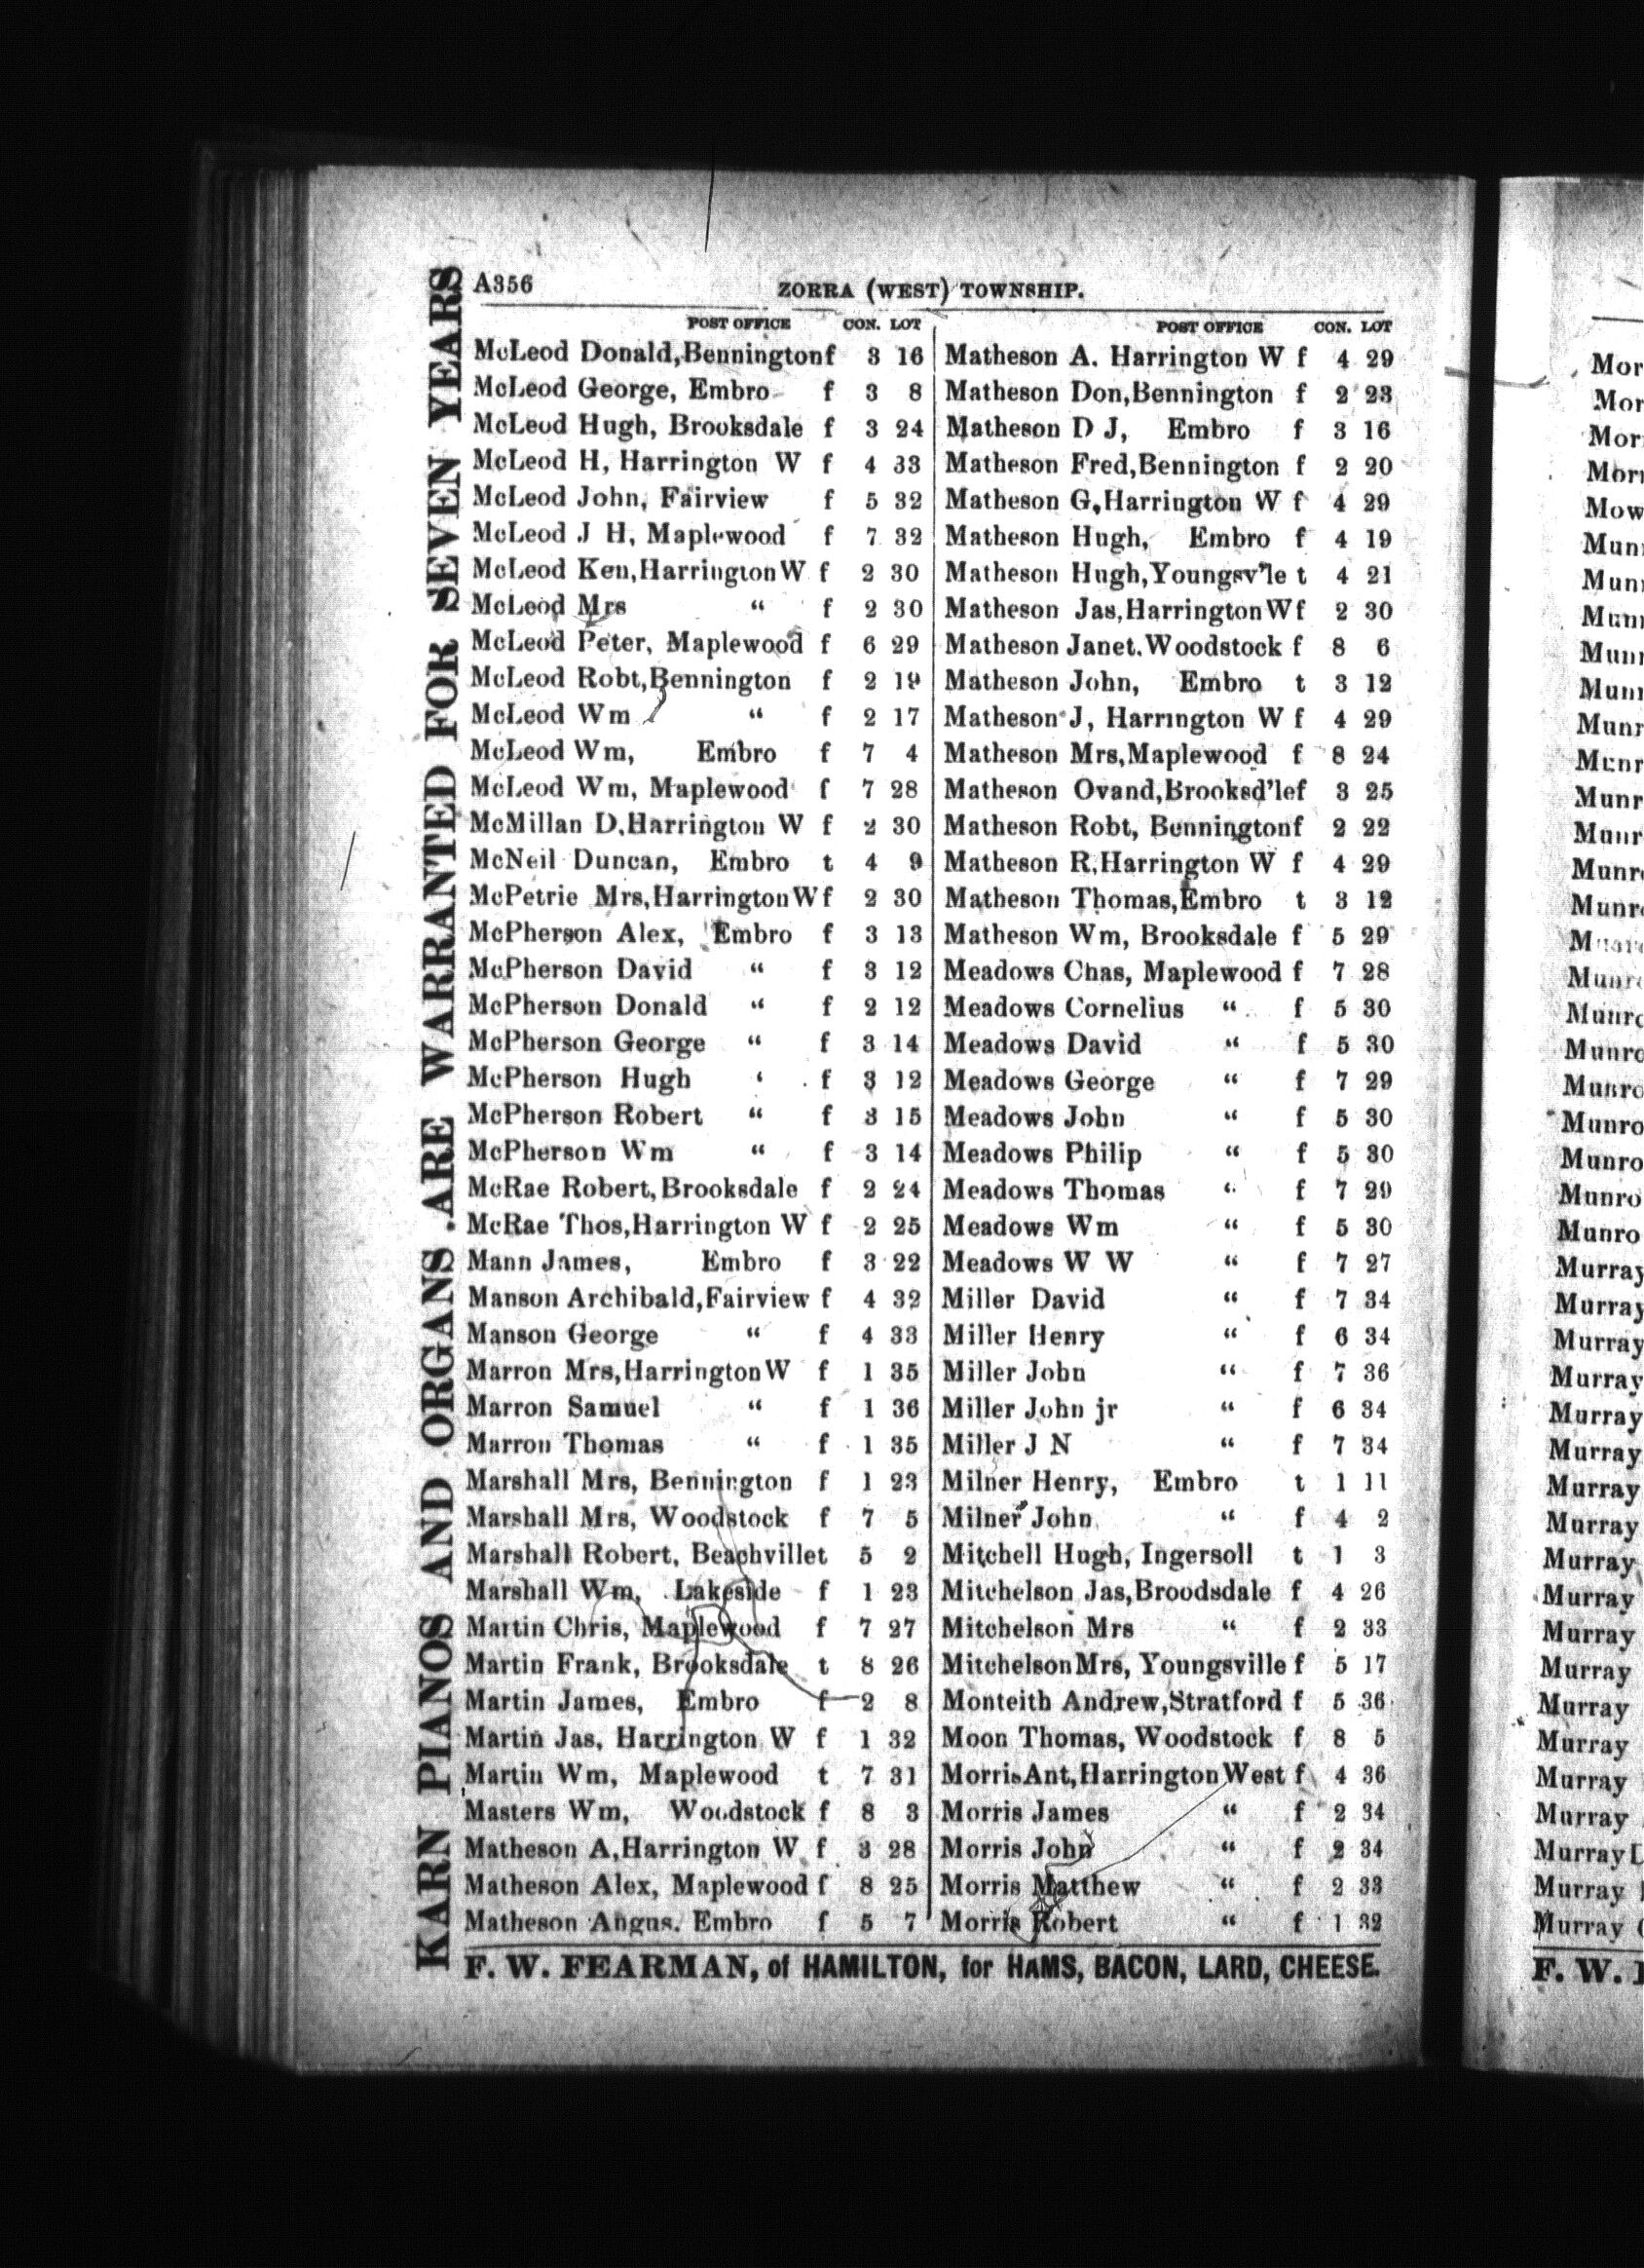 A356
ZORRA (WEST) TOWNSHIP.
POST OFFICE CON. LOT
McLeod Donald, Bennington f 3 16
McLeod George, Embro f 3 8
McLeod Hugh, Brooksdale f 3 24
McLeod H, Harrington W f 4 33
McLeod John, Fairview f 5 32
McLeod J H, Maplewood f 7 32
McLeod Ken, Harrington W f 2 30
McLeod Mrs " f 2 30
McLeod Peter, Maplewood f 6 29
McLeod Robt, Bennington f 2 19
McLeod Wm " f 2 17
McLeod Wm, Embro f 7 4
McLeod Wm, Maplewood f 7 28
McMillan D, Harrington W f 2 30
McNeil Duncan, Embro t 4 9
McPetrie Mrs, Harrington W f 2 30
McPherson Alex, Embro f 3 13
McPherson David " f 3 12
McPherson Donald " f 2 12
McPherson George " f 3 14
McPherson Hugh ' f 3 12
McPherson Robert " f 3 15
McPherson Wm " f 3 14
McRae Robert, Brooksdale f 2 24
McRae Thos, Harrington W f 2 25
Mann James, Embro f 3 22
Manson Archibald, Fairview f 4 32
Manson George " f 4 33
Marron Mrs, Harrington W f 1 35
Marron Samuel " f 1 36
Marron Thomas " f 1 35
Marshall Mrs, Bennington f 1 23
Marshall Mrs, Woodstock f 7 5
Marshall Robert, Beachville t 5 2
Marshall Wm, Lakeside f 1 23
Martin Chris, Maplewood f 7 27
Martin Frank, Brooksdale t 8 26
Martin James, Embro f 2 8
Martin Jas, Harrington W f 1 32
Martin Wm, Maplewood t 7 31
Masters Wm, Woodstock f 8 3
Matheson A, Harrington W f 3 28
Matheson Alex, Maplewood f 8 25
Matheson Angus. Embro f 5 7
POST OFFICE CON. LOT
Matheson A. Harrington W f 4 29
Matheson Don, Bennington f 2 23
Matheson D J, Embro f 3 16
Matheson Fred, Bennington f 2 20
Matheson G, Harrington W f 4 29
Matheson Hugh, Embro f 4 19
Matheson Hugh, Youngsv'le t 4 21
Matheson Jas, Harrington W f 2 30
Matheson Janet. Woodstock f 8 6
Matheson John, Embro t 3 12
Matheson J, Harrington W f 4 29
Matheson Mrs, Maplewood f 8 24
Matheson Ovand, Brooksd'le f 3 25
Matheson Robt, Bennington f 2 22
Matheson R, Harrington W f 4 29
Matheson Thomas, Embro t 3 12
Matheson Wm, Brooksdale f 5 29
Meadows Chas, Maplewood f 7 28
Meadows Cornelius " f 5 30
Meadows David " f 5 30
Meadows George " f 7 29
Meadows John " f 5 30
Meadows Philip " f 5 30
Meadows Thomas " f 7 29
Meadows Wm " f 5 30
Meadows W W " f 7 27
Miller David " f 7 34
Miller Henry " f 6 34
Miller John " f 7 36
Miller John jr " f 6 34
Miller J N " f 7 34
Milner Henry, Embro t 1 11
Milner John " f 4 2
Mitchell Hugh, Ingersoll t 1 3
Mitchelson Jas, Broodsdale f 4 26
Mitchelson Mrs " f 2 33
Mitchelson Mrs, Youngsville f 5 17
Monteith Andrew, Stratford f 5 36
Moon Thomas, Woodstock f 8 5
Morris Ant, Harrington West f 4 36
Morris James " f 2 34
Morris John " f 2 34
Morris Matthew " f 2 33
Morris Robert " f 1 32
F. W. FEARMAN, of HAMILTON, for HAMS, BACON, LARD, CHEESE.
KARN PIANOS AND ORGANS ARE WARRANTED FOR SEVEN YEARS
Murray
Murray
Murray
Murray
Murray
Murray
Murray
Murray
Murray
Murray
Murray
Murray
Murray
Murray
Murray
Murray
Murray
Murray
Murray
F. W.